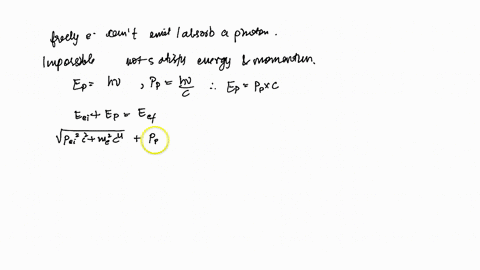 freely e⁻ can't emit/absorb a photon.
Impossible not satisfy energy & momentum.
E_P = hν , P_P = hν/c ∴ E_P = P_P × c
E_ei + E_P = E_ef
√(P_ei² c² + m_e² c⁴) + P_P